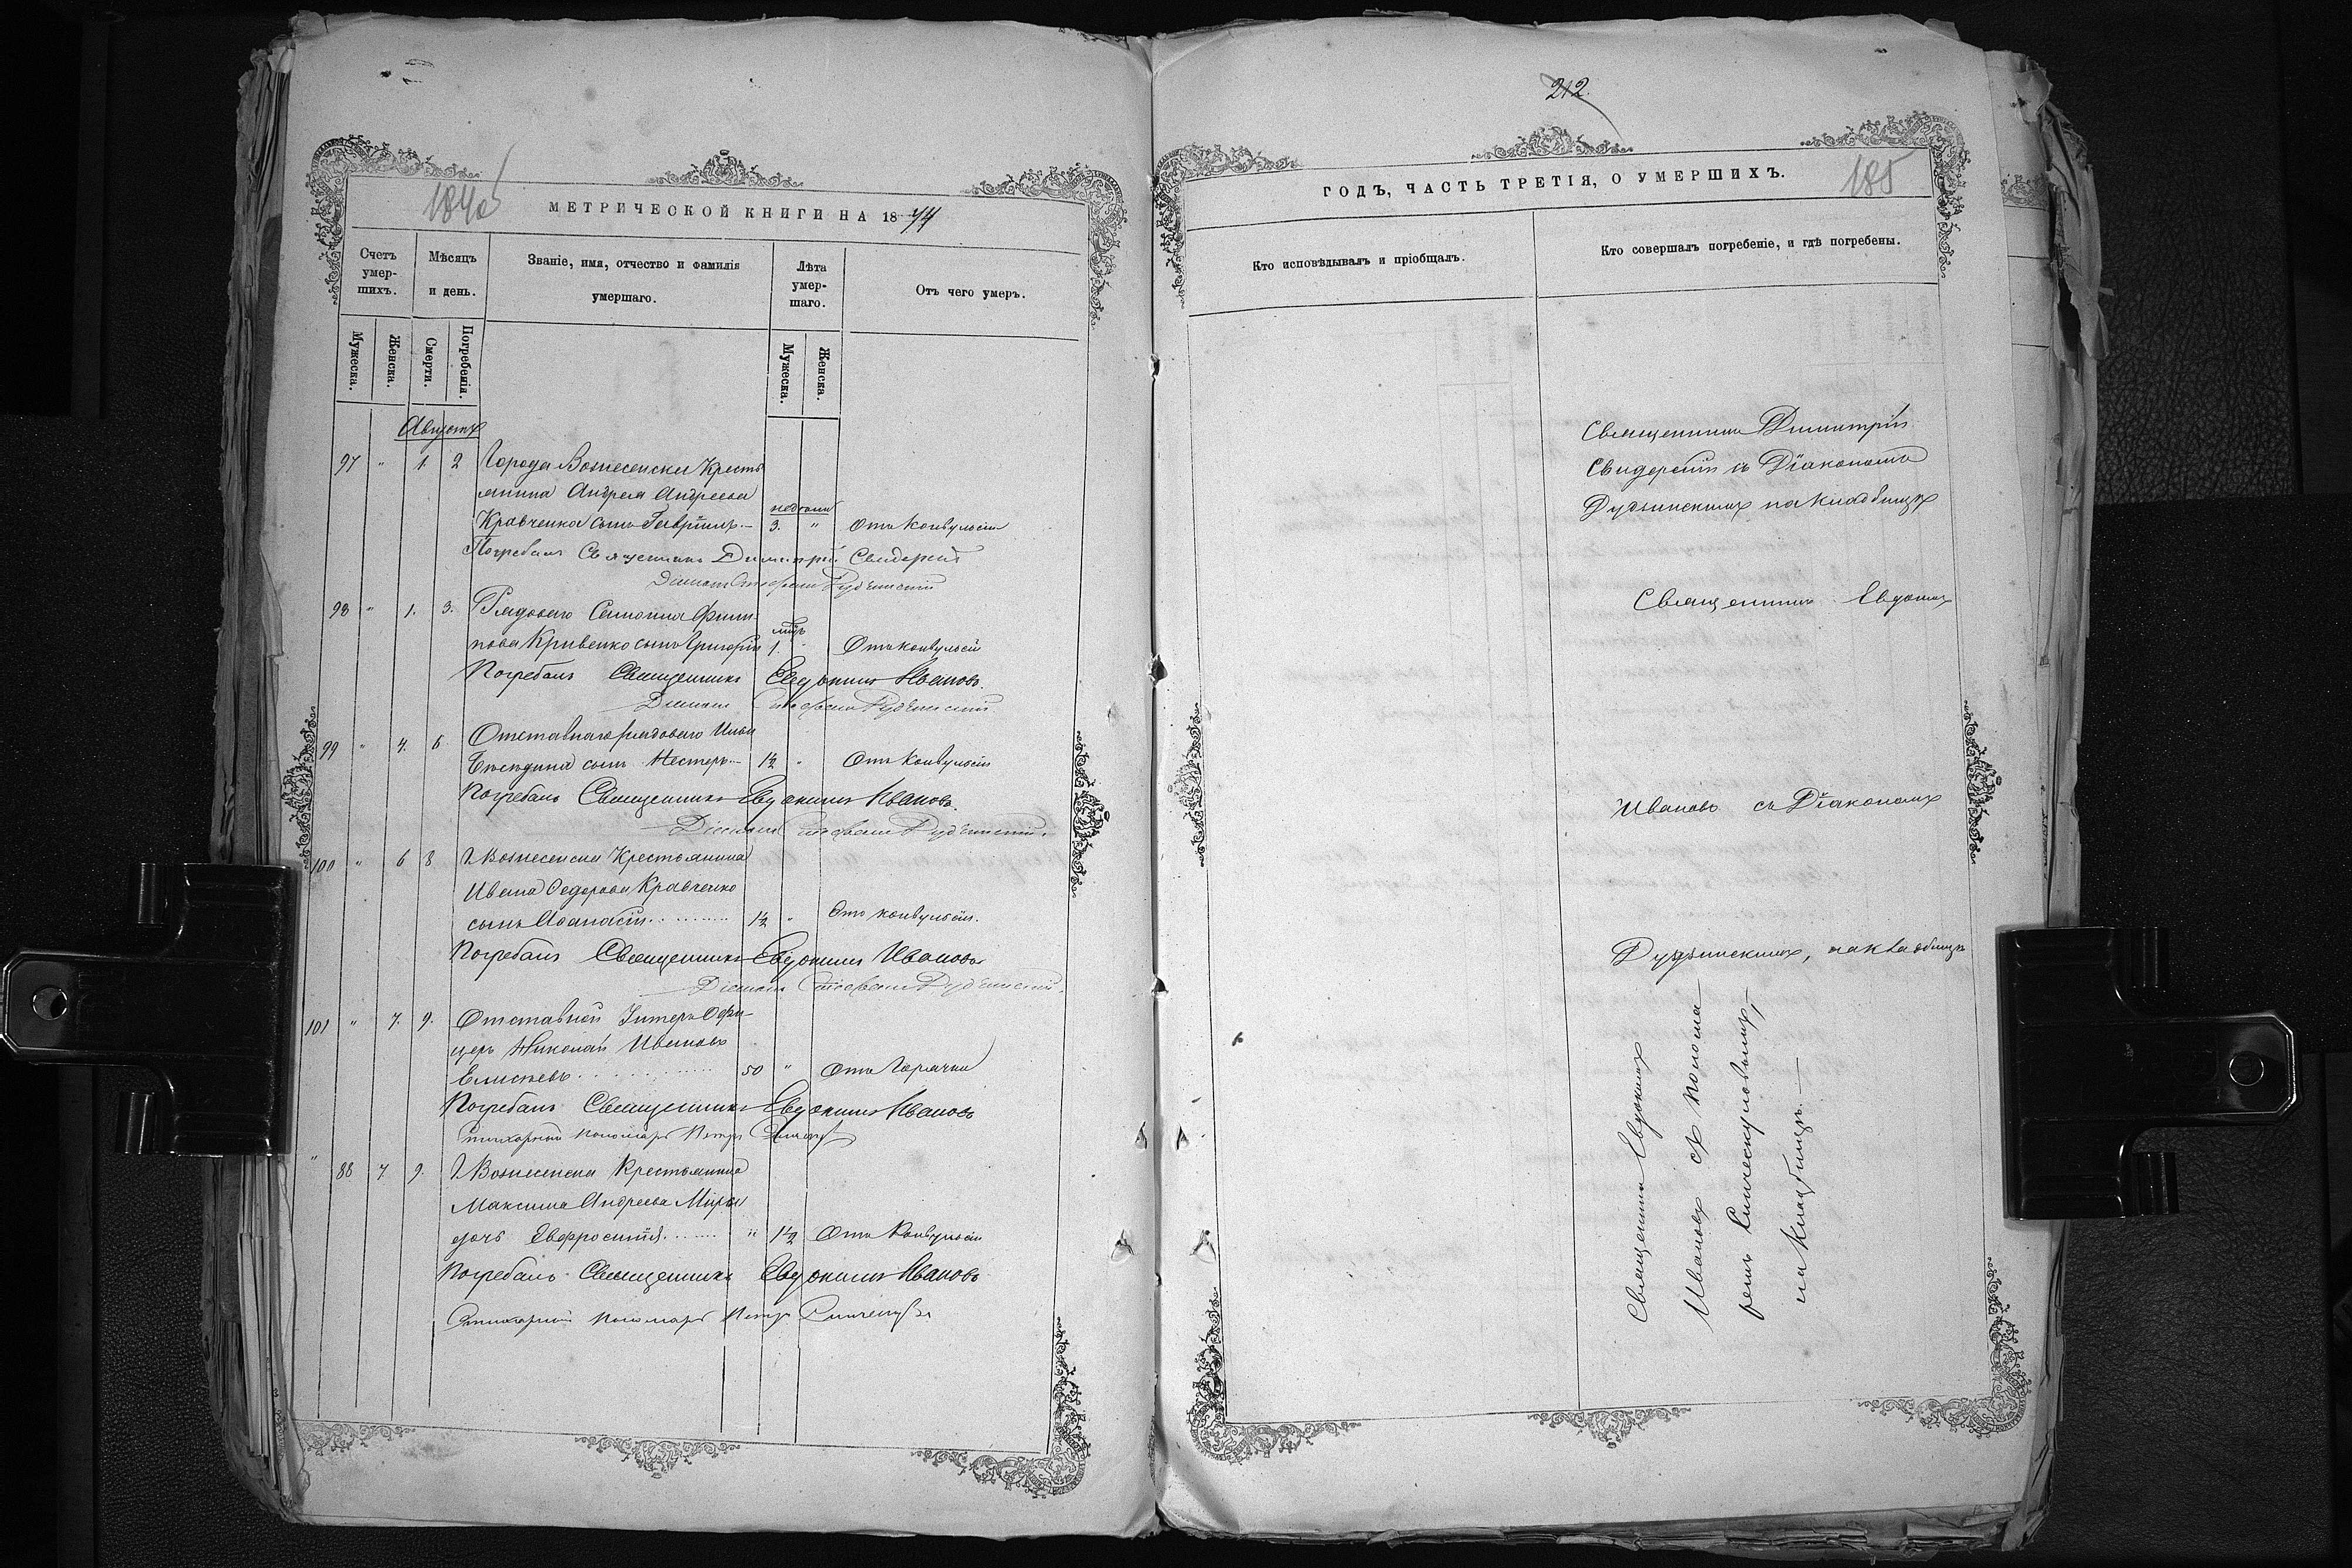 МЕТРИЧЕСКОЙ КНИГИ НА 1874
Счетъ умершихъ.
Мѣсяцъ и день.
Званіе, имя, отчество и фамилія умершаго.
Лѣта умершаго.
Отъ чего умеръ.
Мужеска.
Женска.
Смерти.
Погребенія.
Мужеска.
Женска.
Августъ
97 " 1. 2 Города Вознесенска Кресть
янина Андрея Андреева
недѣли
Кравченка сынъ Гавріилъ 3. " Отъ конвульсіи
Погребалъ Священникъ Димитрій Свидерскій
Діаконъ Стефанъ Рудзинскій
98 " 1. 3. Рядоваго Семiона Филип
пова Кривенко сынъ Григорій 1. Отъ конвульсіи
Погребалъ Священникъ Евдокимъ Ивановъ.
Діаконъ Стефанъ Рудзинскій
99 " 4. 6. Отставнаго рядоваго Ильи
сынъ Несторъ 1/2 " Отъ конвульсіи
Погребалъ Священникъ Евдокимъ Ивановъ.
Діаконъ Стефанъ Рудзинскій.
100 " 6 8 Г. Вознесенска Крестьянина
Ивана Федорова Кравченко
сынъ Аѳанасій 1/2 " Отъ конвульсіи.
Погребалъ Священникъ Евдокимъ Ивановъ
Діаконъ Стефанъ Рудзинскій.
101 " 7. 9. Отставной Унтеръ Офи-
церъ Николай Ивановъ
Елисѣевъ 50 " Отъ Горячки
Погребалъ Священникъ Евдокимъ Ивановъ
Стихарный пономарь Петръ
" 88 7 9. Г. Вознесенска Крестьянина
Максима Андреева
дочь Евфросинія " 1/2 Отъ Конвульсіи
Погребалъ Священникъ Евдокимъ Ивановъ
Стихарный пономарь Петръ
212
ГОДЪ, ЧАСТЬ ТРЕТІЯ, О УМЕРШИХЪ.
185
Кто исповѣдывалъ и пріобщалъ.
Кто совершалъ погребеніе, и гдѣ погребены.
Священникъ Димитрій
Свидерскій съ Діакономъ
Рудзинскимъ на кладбищѣ
Священникъ Евдокимъ
Ивановъ съ Діакономъ
Рудзинскимъ, на кладбищѣ
Священникъ Евдокимъ
Ивановъ съ понома-
ремъ
на кладбищѣ.